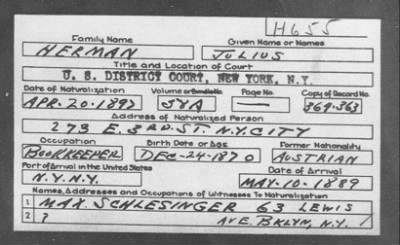 H655
Family Name Given Name or Names
HERMAN JULIUS
Title and Location of Court
U. S. DISTRICT COURT, NEW YORK, N.Y.
Date of Naturalization Volume or Bundle No. Page No. Copy of Record No.
APR. 20. 1897 54A — 369-363
Address of Naturalized Person
273 E. 3RD. ST. N.Y. CITY
Occupation Birth Date or Age Former Nationality
BOOKKEEPER DEC-24-1870 AUSTRIAN
Port of Arrival in the United States Date of Arrival
N.Y. N.Y. MAY-10-1889
Names, Addresses and Occupations of Witnesses To Naturalization
1 MAX SCHLESINGER 63 LEWIS
2 ? AVE. BKLYN, N.Y.